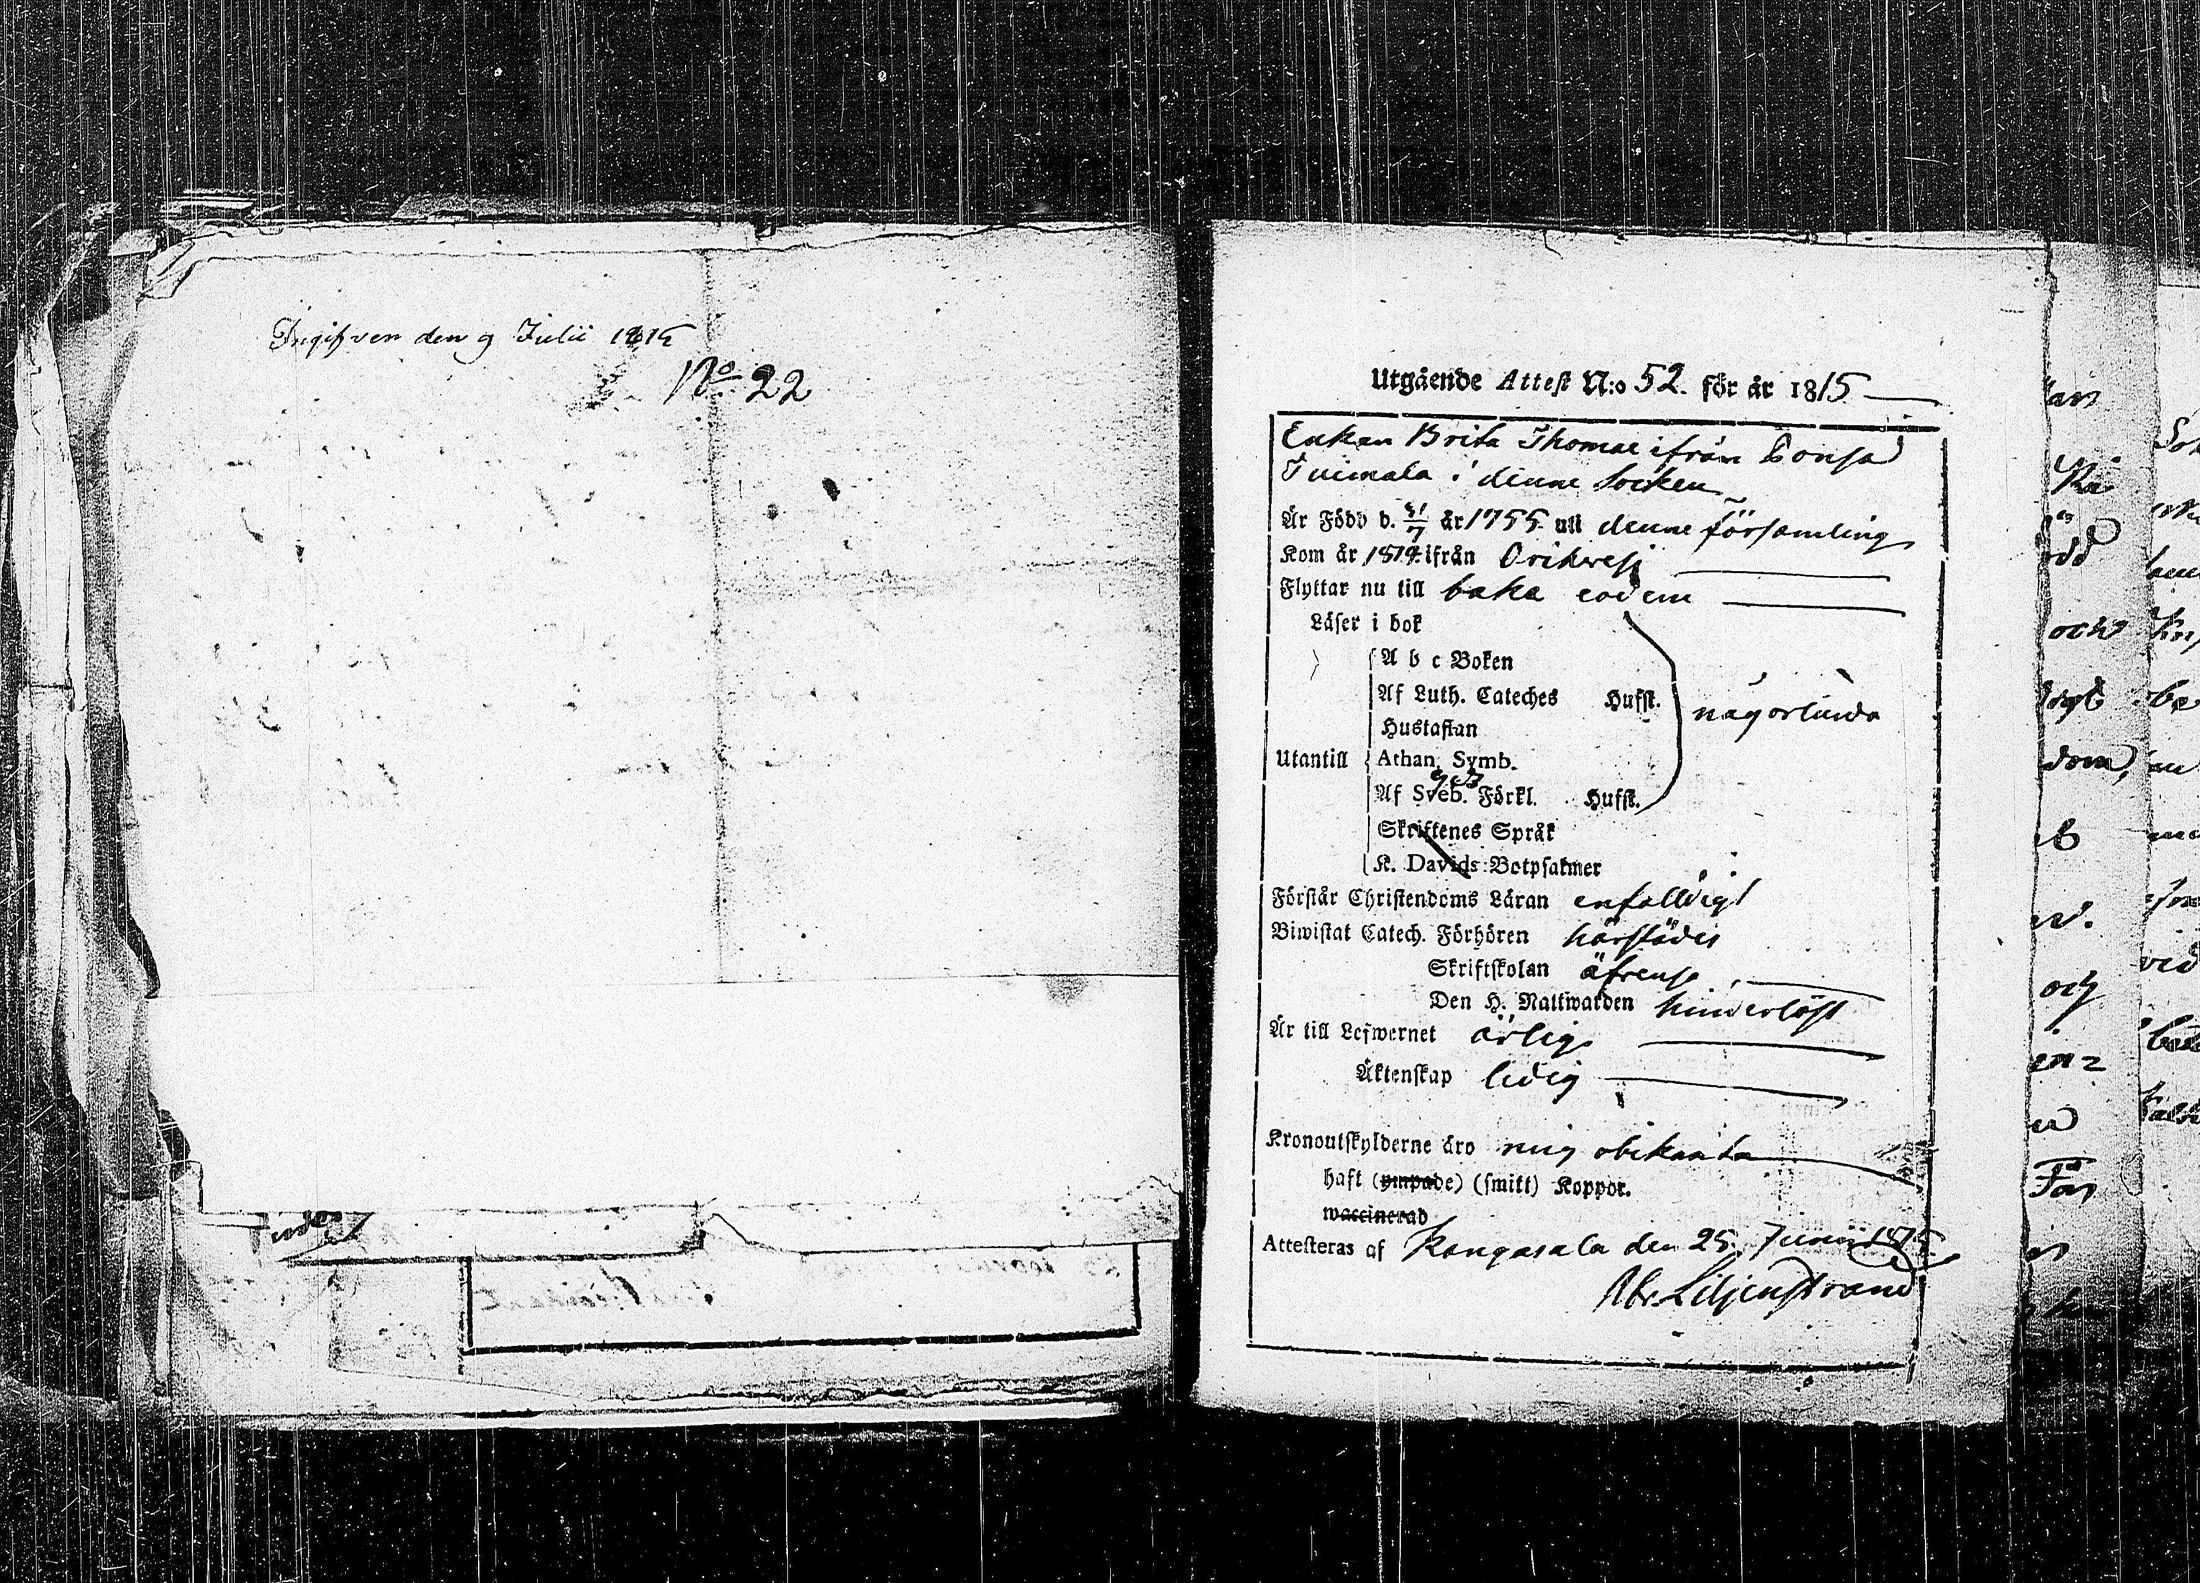 Ingifven den 9 Julii 1815
No 22
Utgående Attest N:o 52. för år 1815
Enkan Brita Thomae ifrån
i denne Socken
Är Född d. 31/7 år 1755 uti denne församling
Kom år 1814 ifrån Orihvesi
Flyttar nu till baka eodem
Läser i bok
A b c Boken
Af Luth. Cateches Hufst.
någorlunda
Hustaflan
Utantill Athan. Symb.
Af Sveb. Förkl. Hufst.
Skriftenes Språk
K. Davids Botpsalmer
Förstår Christendoms Läran enfalldigt
Biwistat Catech. Förhören härstädes
Skriftskolan äfvense
Den H. Nattwarden hinderlöst
Är till Lefwernet ärlig
Äktenskap ledig
Kronoutskylderne äro mig obekanta
haft (ympade) (smitt) Koppor.
waccinerad
Attesteras af Kangasala den 25. Junii 1815
Abr. Liljenstrand